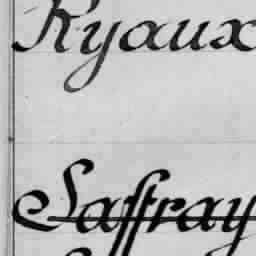 Ryaux
Saffray